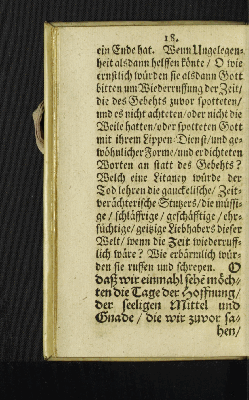 18.
ein Ende hat. Wenn Ungelegen-
heit alsdann helffen könte / O wie
ernstlich würden sie alsdann Gott
bitten um Wiederruffung der Zeit/
die des Gebehts zuvor spotteten/
und es nicht achteten/oder nicht die
Weile hatten/oder spotteten Gott
mit ihrem Lippen-Dienst/und ge-
wöhnlicher Forme/und erdichteten
Worten an statt des Gebehts?
Welch eine Litaney würde der
Tod lehren die gauckelische/ Zeit-
verächterische Stutzers/die müssi-
ge / schläffrige / geschäftige / ehr-
süchtige/geitzige Liebhabers dieser
Welt/ wenn die Zeit wiederruff-
lich wäre? Wie erbärmlich wür-
den sie ruffen und schreyen. O
daß wir einmahl sehẽ möch-
ten die Tage der Hoffnung/
der seeligen Mittel und
Gnade / die wir zuvor sa-
hen/